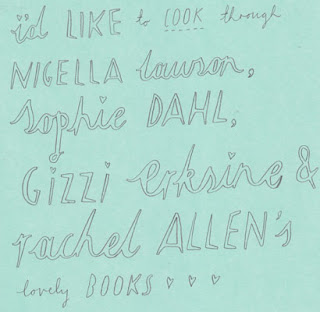 i'd LIKE to COOK through
NIGELLA lawson,
sophie DAHL,
GIZZI erksine &
rachel ALLEN's
lovely BOOKS ♥ ♥ ♥